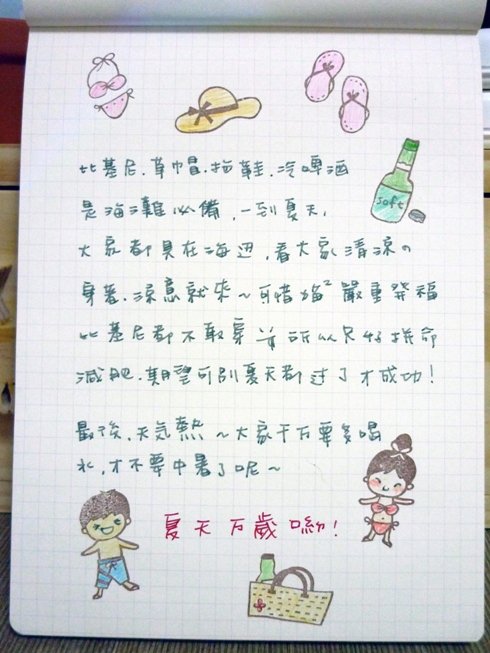 比基尼.草帽.拖鞋.冷啤酒
soft
是海灘必備,一到夏天,
大家都具在海邊,看大家清涼の
穿著.涼意就來~可惜 嚴重發福
比基尼都不敢穿 所以只好拼命
減肥.期望可別夏天都过了才成功!
最後,天氣熱~大家千万要多喝
水,才不要中暑了呢~
夏天万歲呦!